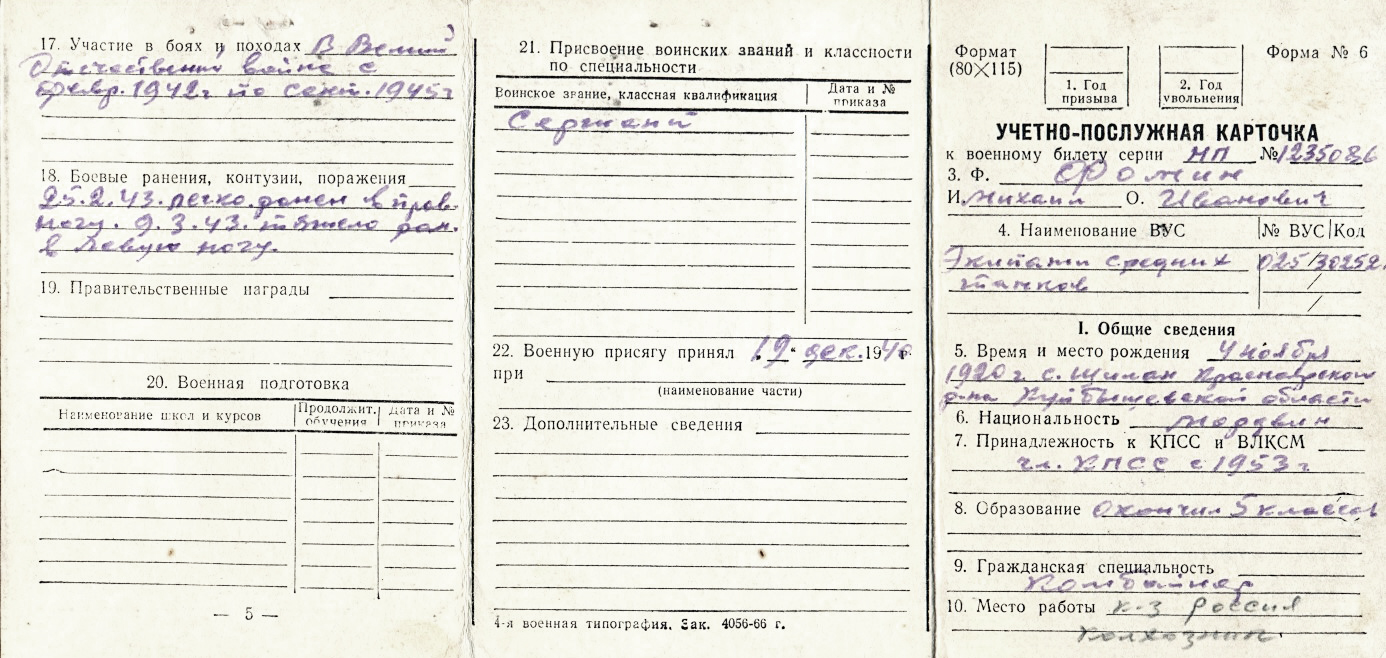 17. Участие в боях и походах В Великой
Отечественной войне с
февр. 1942г по сент. 1945г
18. Боевые ранения, контузии, поражения
25.2.43. легко ранен в прав.
ногу. 9.3.43. тяжело ран.
в левую ногу.
19. Правительственные награды
20. Военная подготовка
Наименование школ и курсов
Продолжит. обучения
Дата и № приказа
— 5 —
21. Присвоение воинских званий и классности
по специальности
Воинское звание, классная квалификация
Дата и № приказа
Сержант
22. Военную присягу принял 19 " дек. 1940 г.
при
(наименование части)
23. Дополнительные сведения
4-я военная типография. Зак. 4056-66 г.
Формат
(80×115)
1. Год
призыва
2. Год
увольнения
Форма № 6
УЧЕТНО-ПОСЛУЖНАЯ КАРТОЧКА
к военному билету серии НП № 1235086
3. Ф. Фомин
И. Михаил О. Иванович
4. Наименование ВУС № ВУС Код
Экипажи средних 025/30252
танков
I. Общие сведения
5. Время и место рождения 4 ноября
1920 г. с. Шилан Красноярского
р-на Куйбышевской области
6. Национальность мордвин
7. Принадлежность к КПСС и ВЛКСМ
чл. КПСС с 1953 г
8. Образование Окончил 5 классов
9. Гражданская специальность
Комбайнер
10. Место работы к-з Россия
колхозник